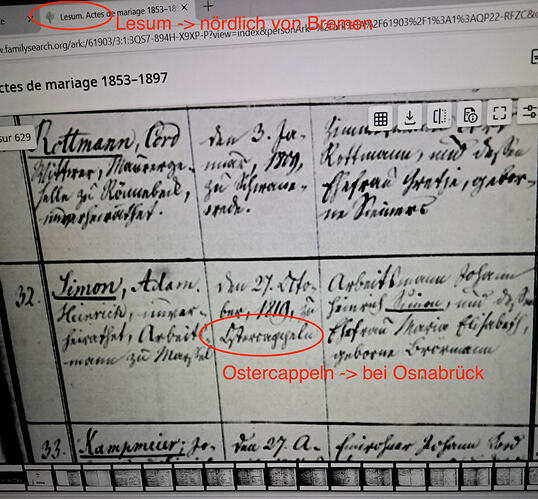 Lesum. Actes de mariage 1853–18
Lesum -> nördlich von Bremen
w.familysearch.org/ark:/61903/3:1:3QS7-894H-X9XP-P?view=index&personArk=
2F61903%2F1%3A1%3AQP22-RFZC&
ctes de mariage 1853–1897
sur 629
Rottmann, Cord
Maurerge-
selle zu Rönnebeck,
unverheirathet.
den 3. Ja-
nuar, 1829,
zu Schwane-
wede.
Rottmann, und dessen
Ehefrau Gretje, gebor-
ne Steiners
32. Simon, Adam
Hinrich, unver-
heirathet, Arbeits-
mann zu
den 27. Octo-
ber, 1819, zu
Ostercappeln
Arbeitsmann Johann
Heinrich Simon, und
Ehefrau Maria Elisabeth,
geborne
Ostercappeln -> bei Osnabrück
33. Kampmeier, Jo-
den 27. A-
Johann Cord